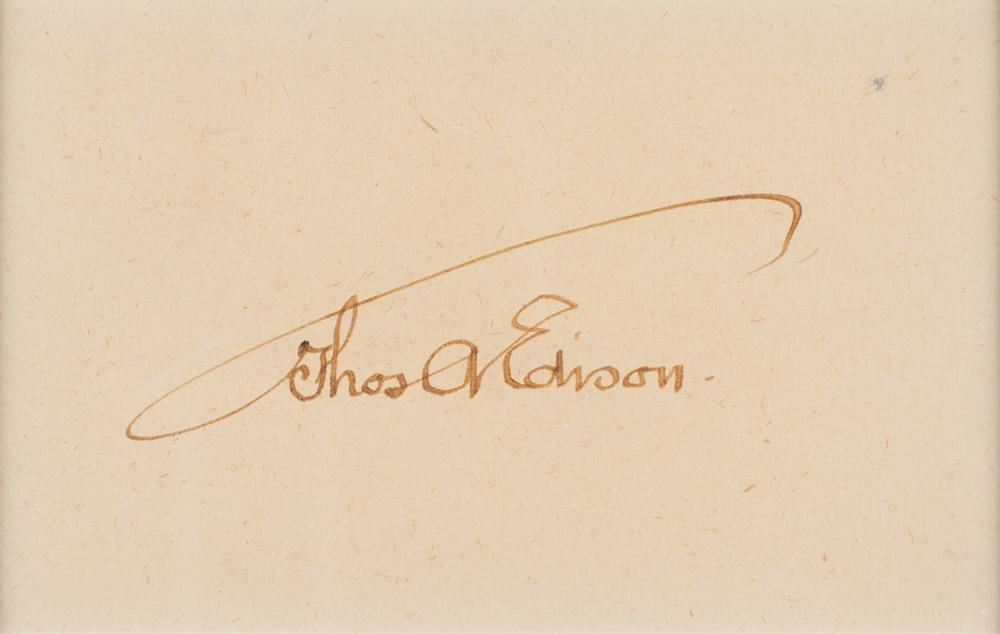 Thos A Edison.